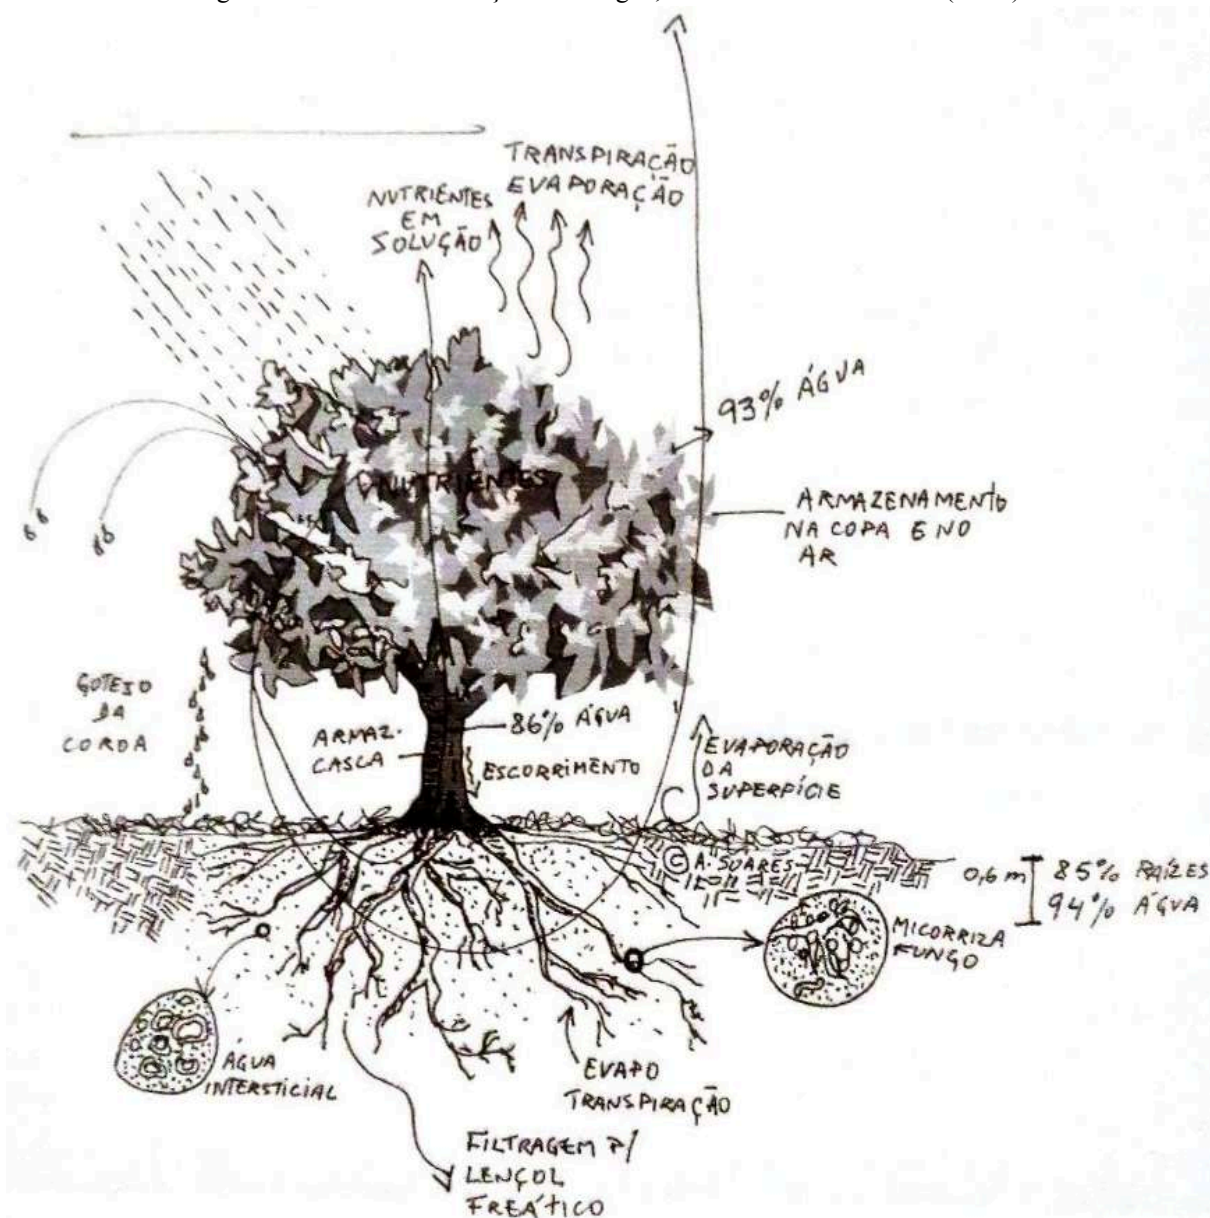 TRANSPIRAÇÃO
EVAPORAÇÃO
NUTRIENTES
EM
SOLUÇÃO
93% ÁGUA
NUTRIENTES
ARMAZENAMENTO
NA COPA E NO
AR
GOTEJO
DA
COROA
ARMAZ.
CASCA
86% ÁGUA
ESCORRIMENTO
EVAPORAÇÃO
DA
SUPERFÍCIE
© A. SUARES
0,6 m
85% RAÍZES
94% ÁGUA
MICORRIZA
FUNGO
ÁGUA
INTERSTICIAL
EVAPO
TRANSPIRAÇÃO
FILTRAGEM P/
LENÇOL
FREÁTICO